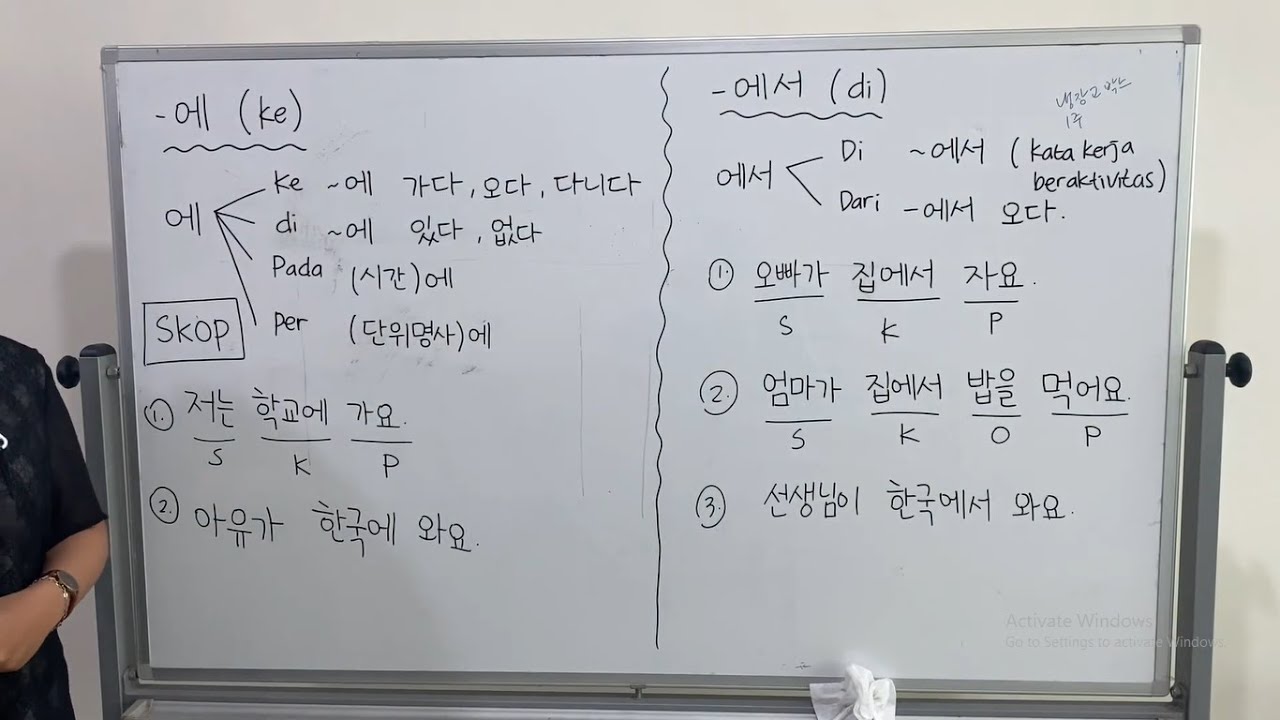 -에 (ke)
에
Ke ~에 가다, 오다, 다니다
di ~에 있다, 없다
Pada (시간)에
Per (단위명사)에
SKOP
1. 저는 학교에 가요.
S K P
2. 아유가 한국에 와요.
-에서 (di)
1주
에서
Di ~에서 (kata kerja
beraktivitas)
Dari -에서 오다.
1. 오빠가 집에서 자요.
S K P
2. 엄마가 집에서 밥을 먹어요.
S K O P
3. 선생님이 한국에서 와요.
Activate Windows
Go to Settings to activate Windows.